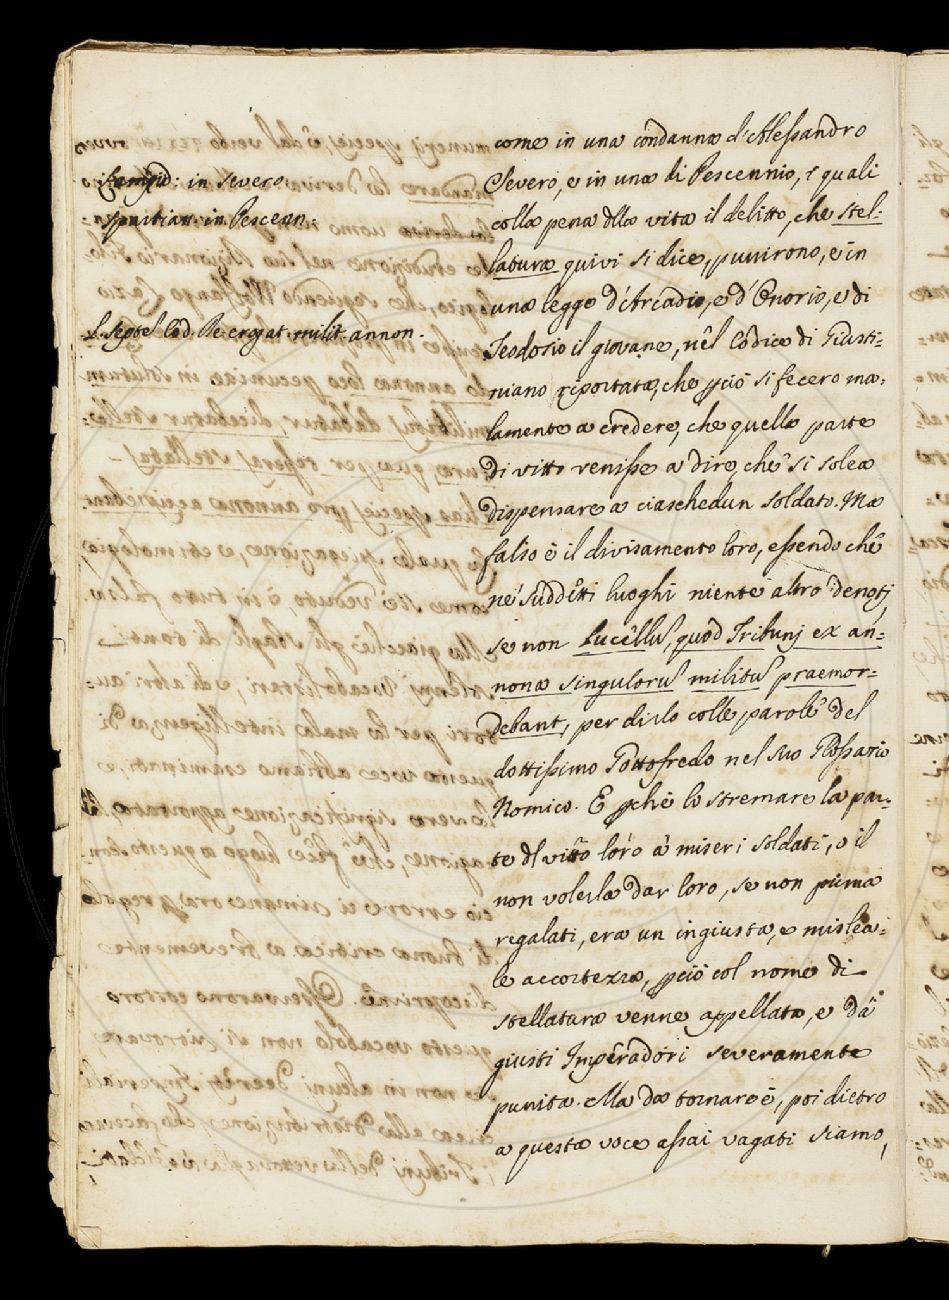 Lamprid: in severo.
spartian. in Pescenn:
L. septe' Cod. De erogat. milit. annon.
come in una condanna d'Alessandro
Severo, e in una di Pescennio, i quali
colla pena dlla vita il delitto, che stel-
latura quivi si dice, punirono, e in
una legge d'Arcadio, e d'Onorio, e di
Teodosio il giovane, nel Codice di Giusti-
niano riportata, che pciò si fecero ma-
lamente a credere, che quella parte
di vitto venisse a dire, che si solea
dispensare a ciaschedun soldato. Ma
falso è il divisamento loro, essendo che
ne' suddetti luoghi niente altro denoti,
se non Lucellu, quod Tribunj ex an-
nona singuloru militu praemor-
debant, per dirlo colle parole del
dottissimo Gottofredo nel suo Glossario
Nomico. E pche lo stremare la par-
te dl vitto loro a' miseri soldati, o il
non volerla dar loro, se non prima
regalati, era un ingiusta, e mislea-
le accortezza, pciò col nome di
stellatura venne appellata, e da'
giusti Imperadori severamente
punita. Ma da tornare è, poi dietro
a questa voce assai vagati siamo,